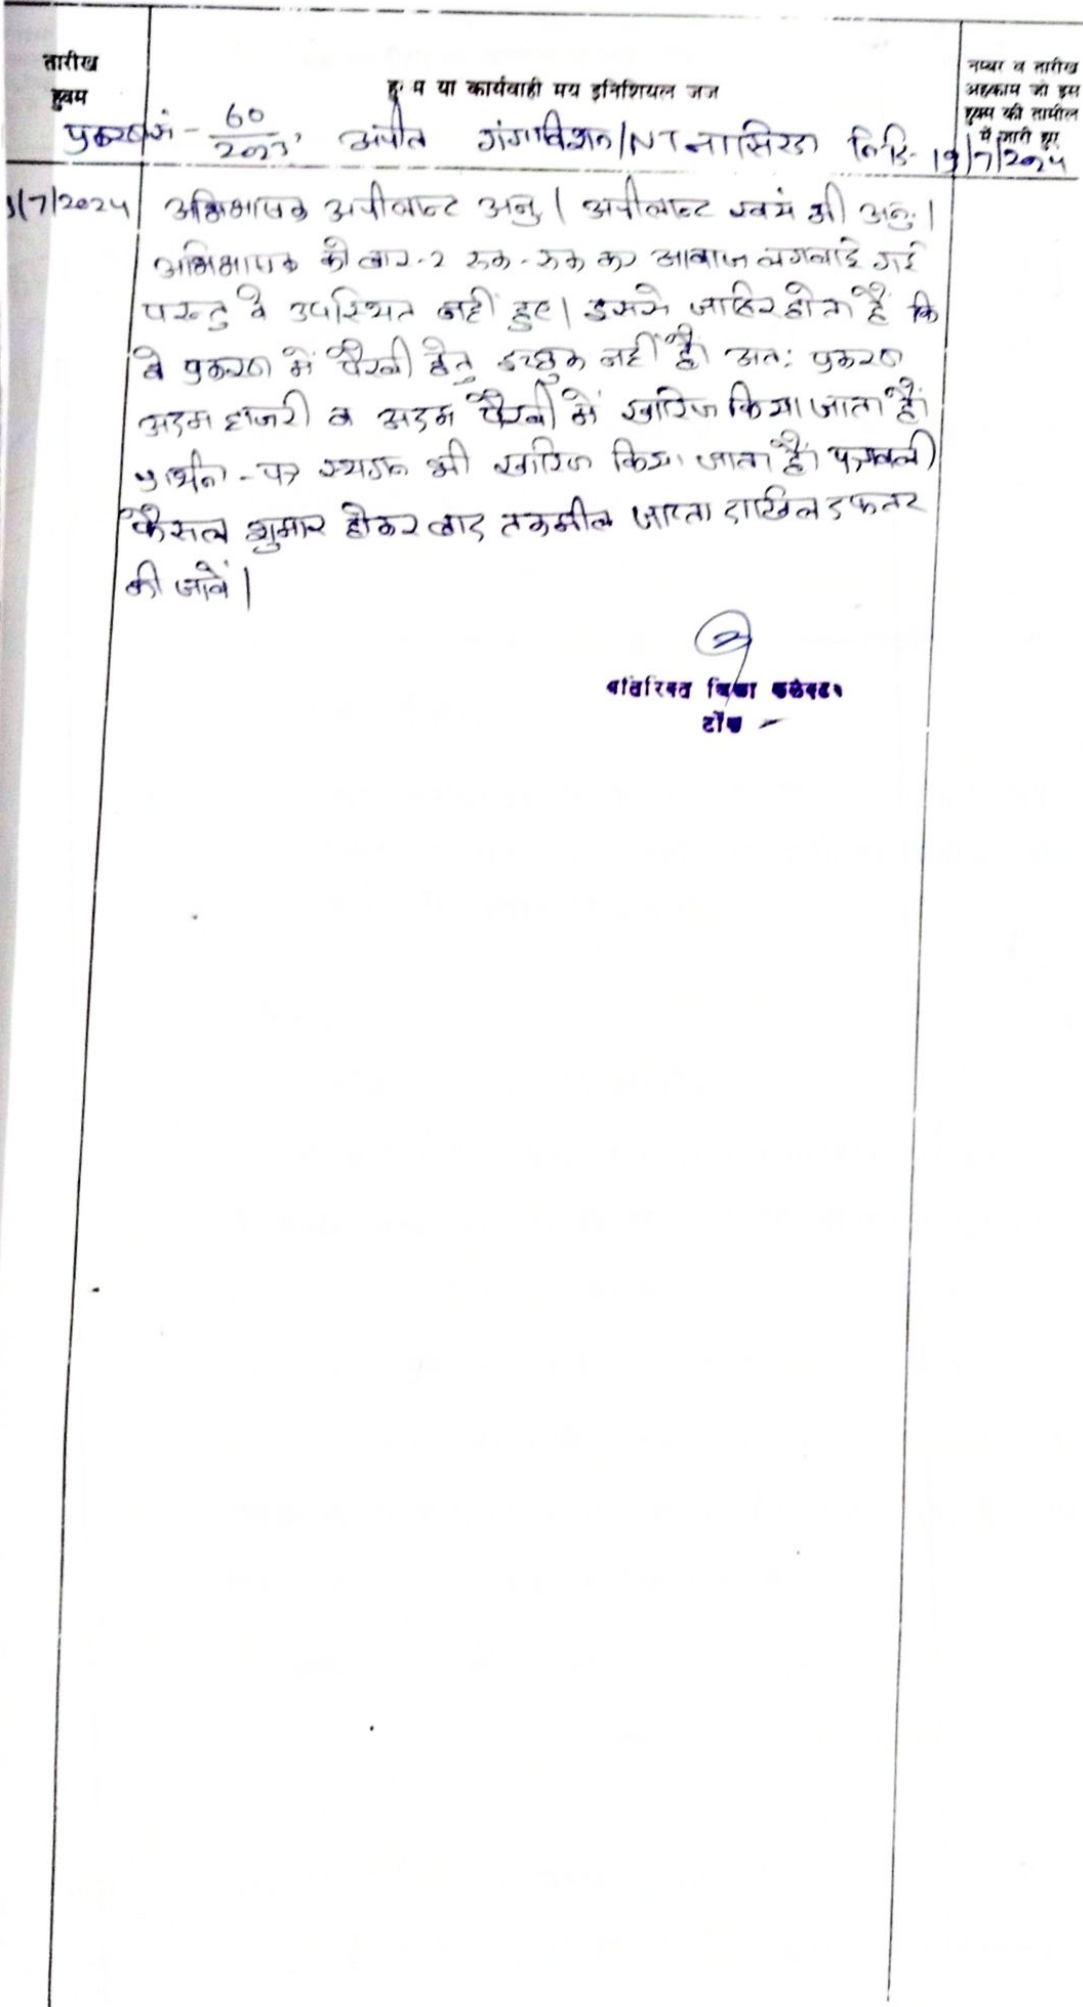 तारीख
हुक्म
हु म या कार्यवाही मय इनिशियल जज
नम्बर व तारीख
अहकाम जो इस
हुक्म की तामील
में जारी हुए
प्रकरण सं - 60/2023, अपील गंगाविशन/NT नासिरदा नि.दि. 19/7/2024
/7/2024 अभिभाषक अपीलान्ट अनु। अपीलान्ट स्वयं भी अनु.।
अभिभाषक को बार-२ रुक-रुक कर आवाज लगवाई गई
परन्तु वे उपस्थित नहीं हुए। इससे जाहिर होता है कि
वे प्रकरण में पैरवी हेतु इच्छुक नहीं है। अतः प्रकरण
अदम हाजरी व अदम पैरवी में खारिज किया जाता है।
प्रार्थना-पत्र स्थगन भी खारिज किया जाता है। पत्रावली
फैसल शुमार होकर बाद तकमील जाप्ता दाखिल दफ्तर
की जावें।
अतिरिक्त जिला कलेक्टर
टोंक